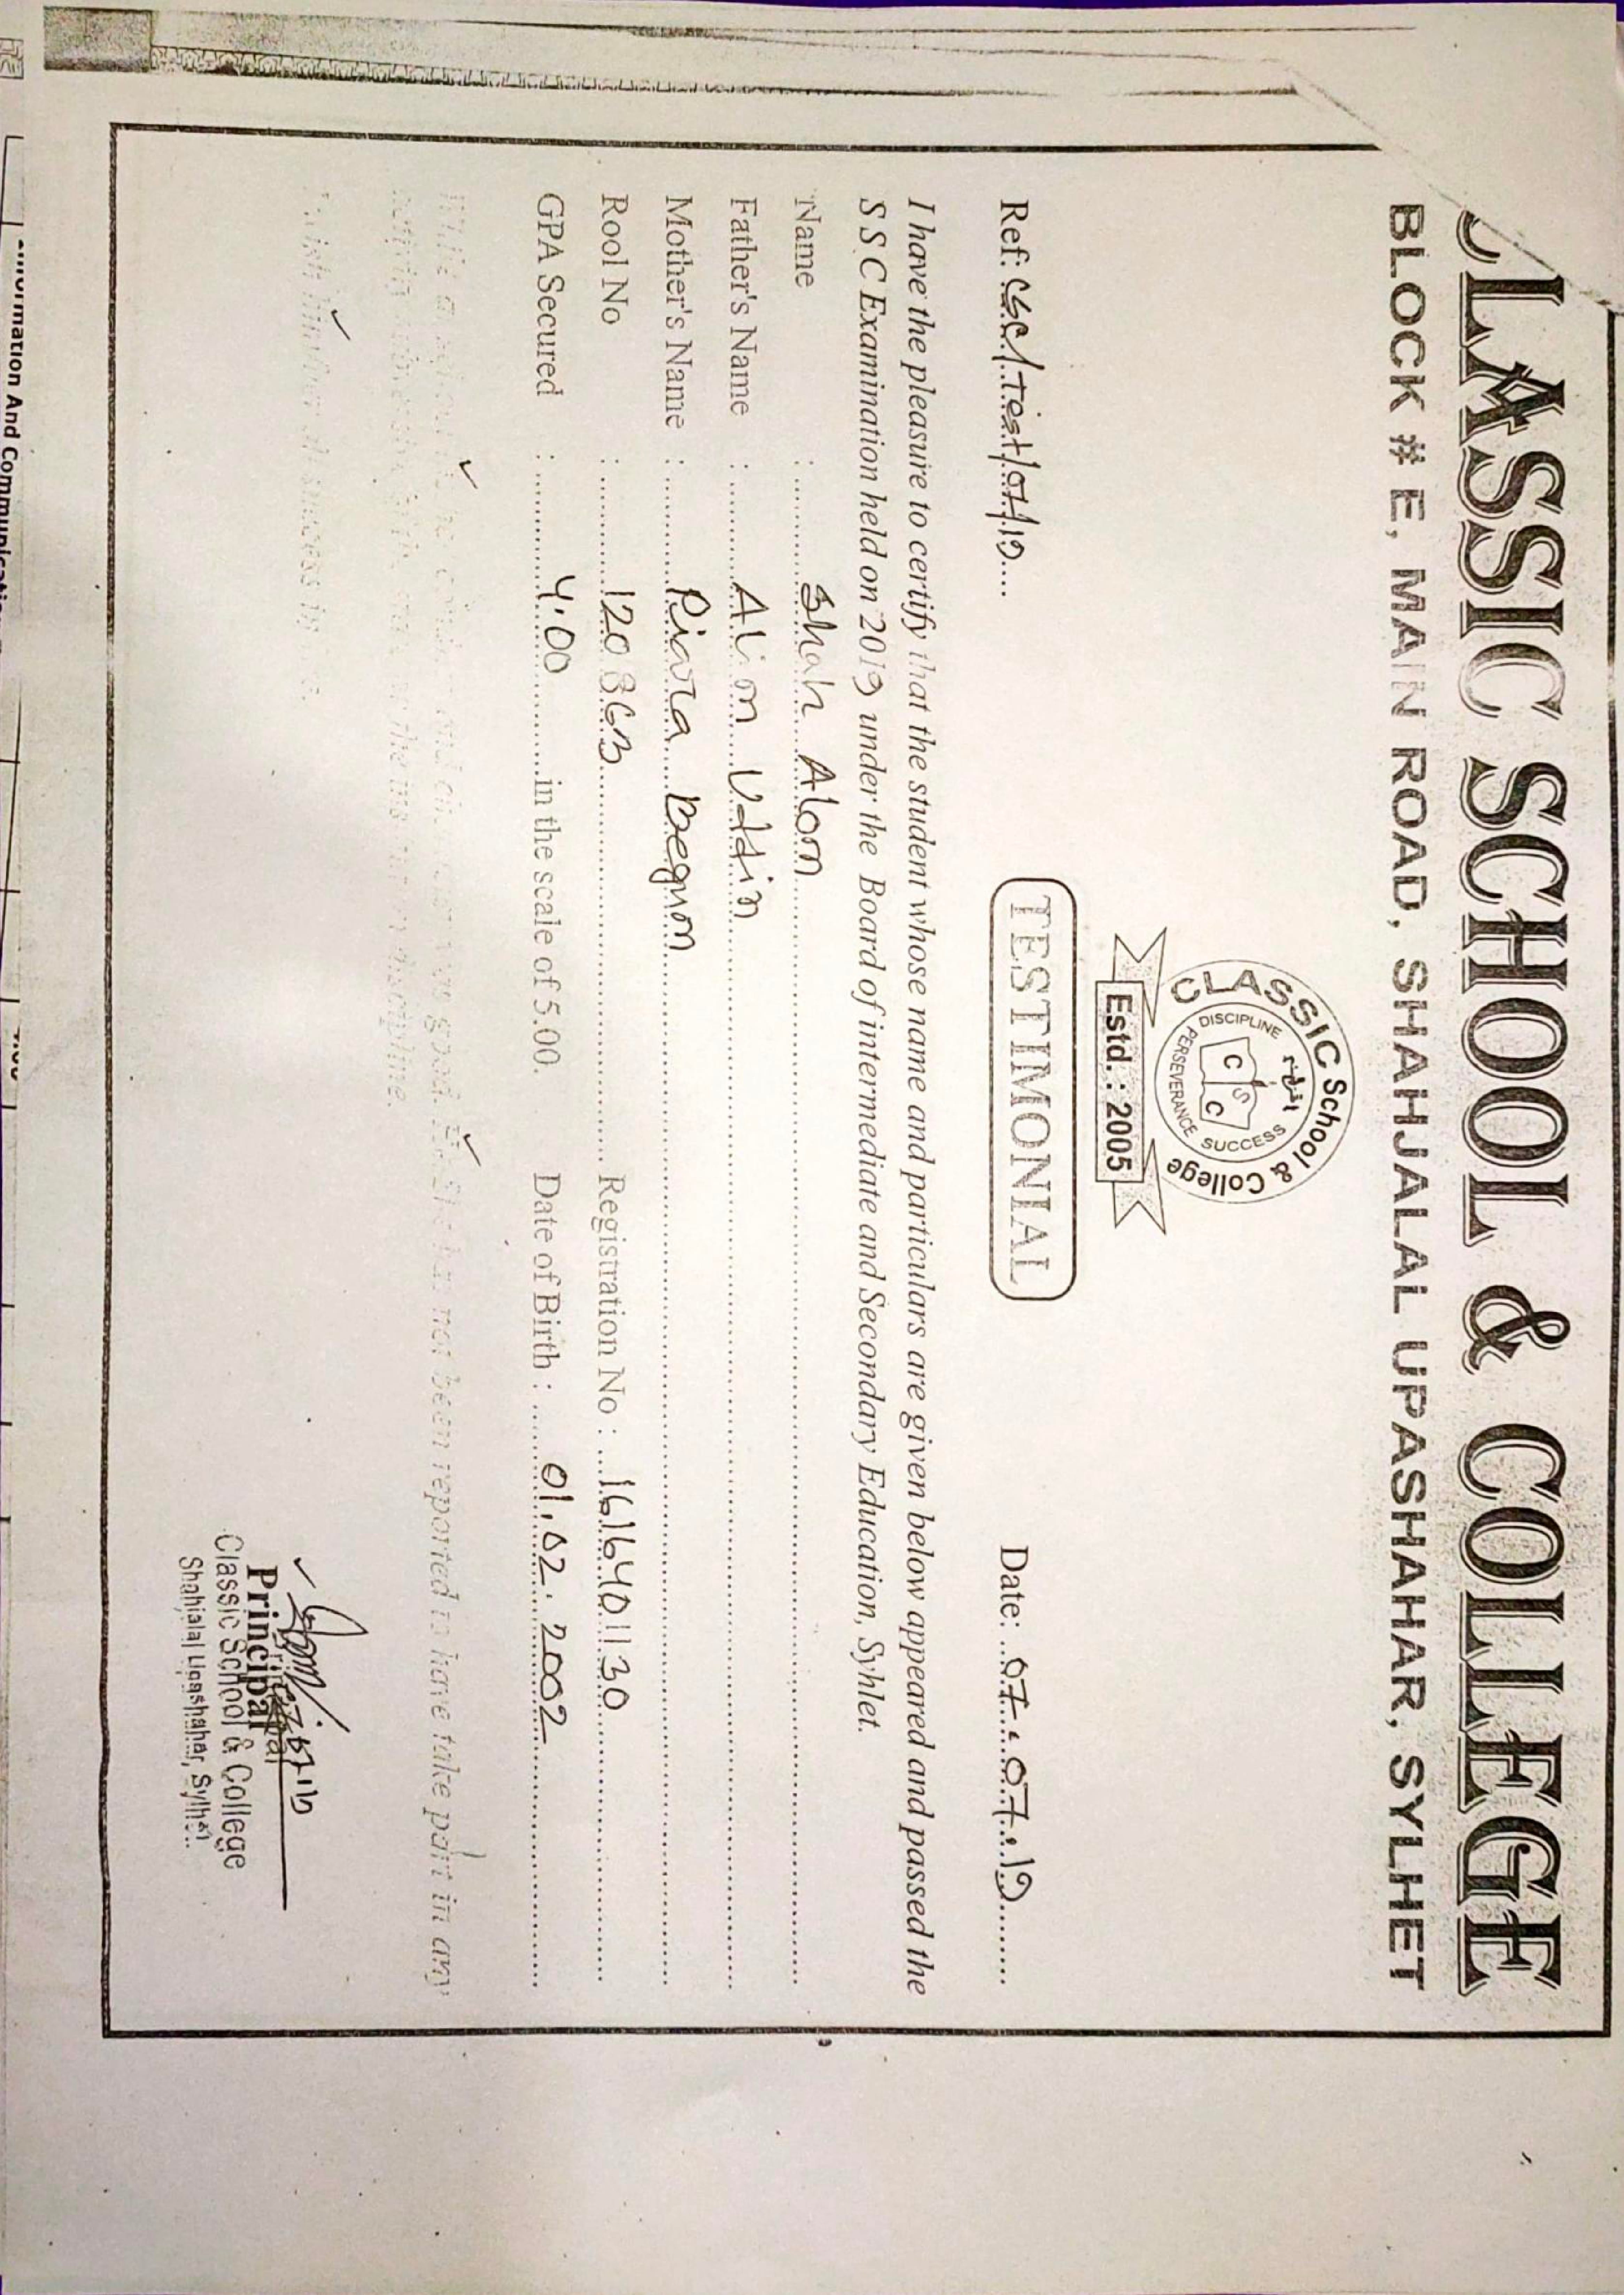 CLASSIC SCHOOL & COLLEGE
BLOCK # E, MAIN ROAD, SHAHJALAL UPASHAHAR, SYLHET
CLASSIC School & College
DISCIPLINE
SUCCESS
PERSEVERANCE
C S C
Estd. : 2005
TESTIMONIAL
Ref: CSC/Test/07/19
Date: 07.07.19
I have the pleasure to certify that the student whose name and particulars are given below appeared and passed the
S S C Examination held on 2019 under the Board of intermediate and Secondary Education, Syhlet.
Name : Shah Alom
Father's Name : Alim Uddin
Mother's Name : Piara Begum
Rool No : 120863 Registration No : 1616401130
GPA Secured : 4.00 in the scale of 5.00. Date of Birth : 01.02.2002
While at school his/her conduct and character was good. He/She has not been reported to have take part in any
activity subversive of the state or the discipline.
I wish him/her all success in life.
Principal
Principal
Classic School & College
Shahjalal Upashahar, Sylhet.
Information And Communication
4.00